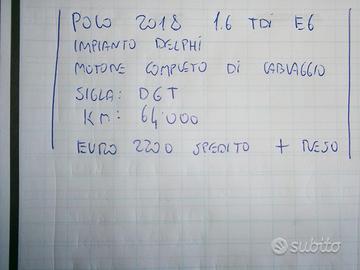 POLO 2018 1.6 TDI E6
IMPIANTO DELPHI
MOTORE COMPLETO DI CABLAGGIO
SIGLA: DGT
KM: 64'000
EURO 2200 SPEDITO + RESO
subito